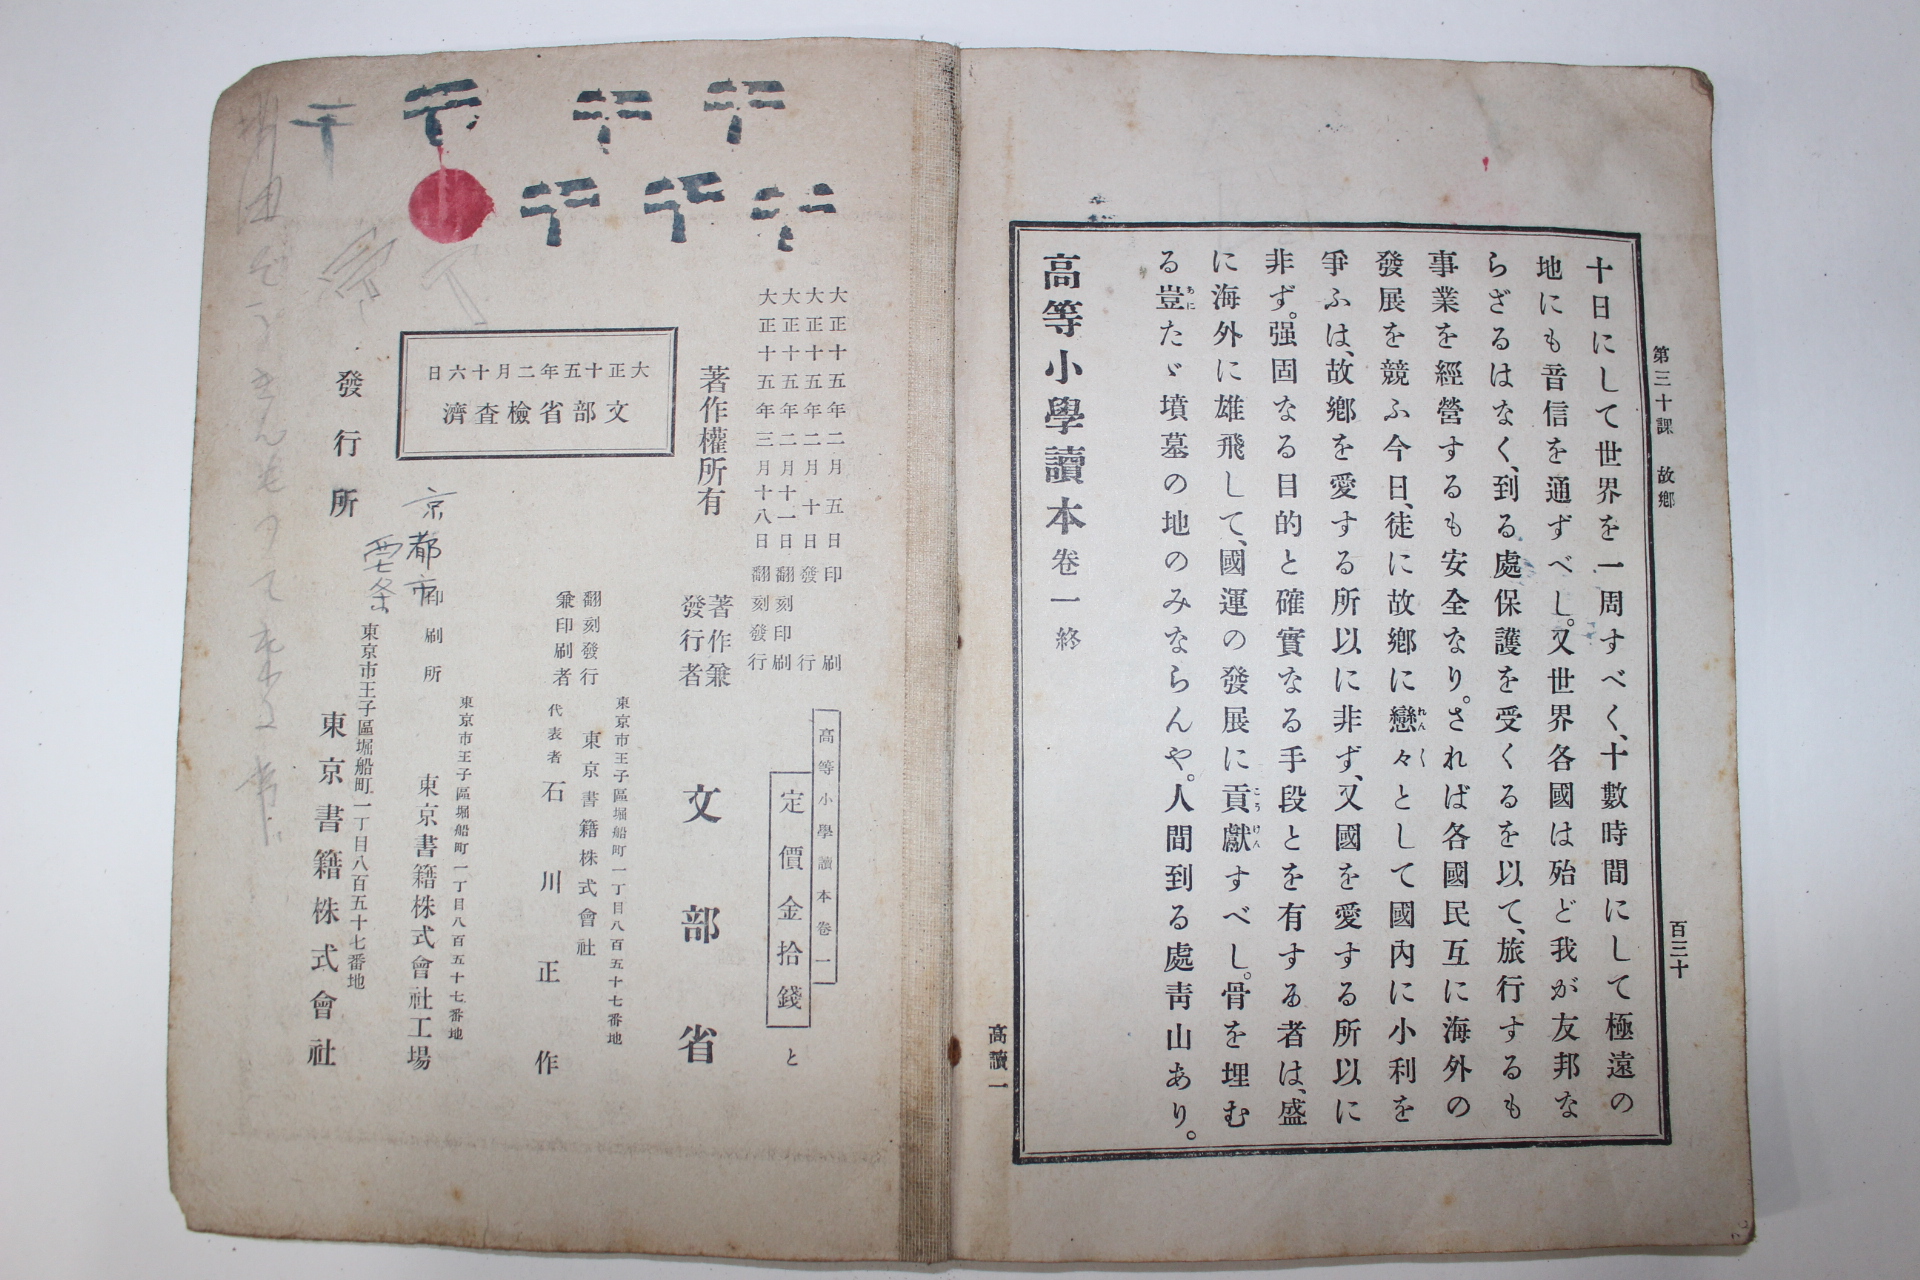 第三十課 故鄕
百三十
十日にして世界を一周すべく、十數時間にして極遠の
地にも音信を通ずべし。又世界各國は殆ど我が友邦な
らざるはなく、到る處保護を受くるを以て、旅行するも
事業を經營するも安全なり。されば各國民互に海外の
發展を競ふ今日、徒に故鄕に戀々として國內に小利を
爭ふは、故鄕を愛する所以に非ず、又國を愛する所以に
非ず。强固なる目的と確實なる手段とを有する者は、盛
に海外に雄飛して、國運の發展に貢獻すべし。骨を埋む
る豈たゞ墳墓の地のみならんや。人間到る處靑山あり。
高等小學讀本 卷一 終
高讀一
大正十五年二月五日印刷
大正十五年二月十日發行
大正十五年二月十一日翻刻印刷
大正十五年三月十八日翻刻發行
高等小學讀本卷一
定價金拾錢
と
著作權所有
著作兼
發行者
文部省
翻刻發行
兼印刷者
東京市王子區堀船町一丁目八百五十七番地
東京書籍株式會社
代表者 石川正作
大正十五年二月十六日
文部省檢查濟
京都市
印刷所
東京市王子區堀船町一丁目八百五十七番地
東京書籍株式會社工場
發行所
東京市王子區堀船町一丁目八百五十七番地
東京書籍株式會社